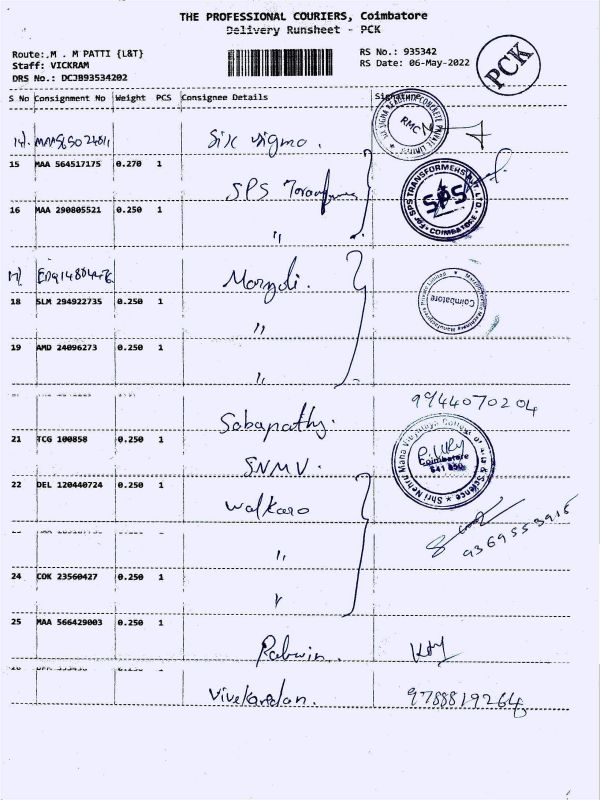 THE PROFESSIONAL COURIERS, Coimbatore
Delivery Runsheet - PCK
Route:.M . M PATTI {L&T}
Staff: VICKRAM
DRS No.: DCJB93534202
RS No.: 935342
RS Date: 06-May-2022
PCK
S No Consignment No Weight PCS Consignee Details Signature
Six sigma.
RMC
15 MAA 564517175 0.270 1
SPS
FOR SPS TRANSFORMERS PVT. LTD.
SPS
COIMBATORE
16 MAA 290805521 0.250 1
"
17)
18 SLM 294922735 0.250 1
"
Coimbatore
19 AMD 24096273 0.250 1
"
9944070204
Sabapathy.
21 TCG 100858 0.250 1
SNMV.
Shri Nehru Maha Vidyalaya College of Arts & Science
Coimbatore
641 050
22 DEL 120440724 0.250 1
Walkaro
"
9369553915
24 COK 23560427 0.250 1
25 MAA 566429003 0.250 1
Vivekandan.
9788819264